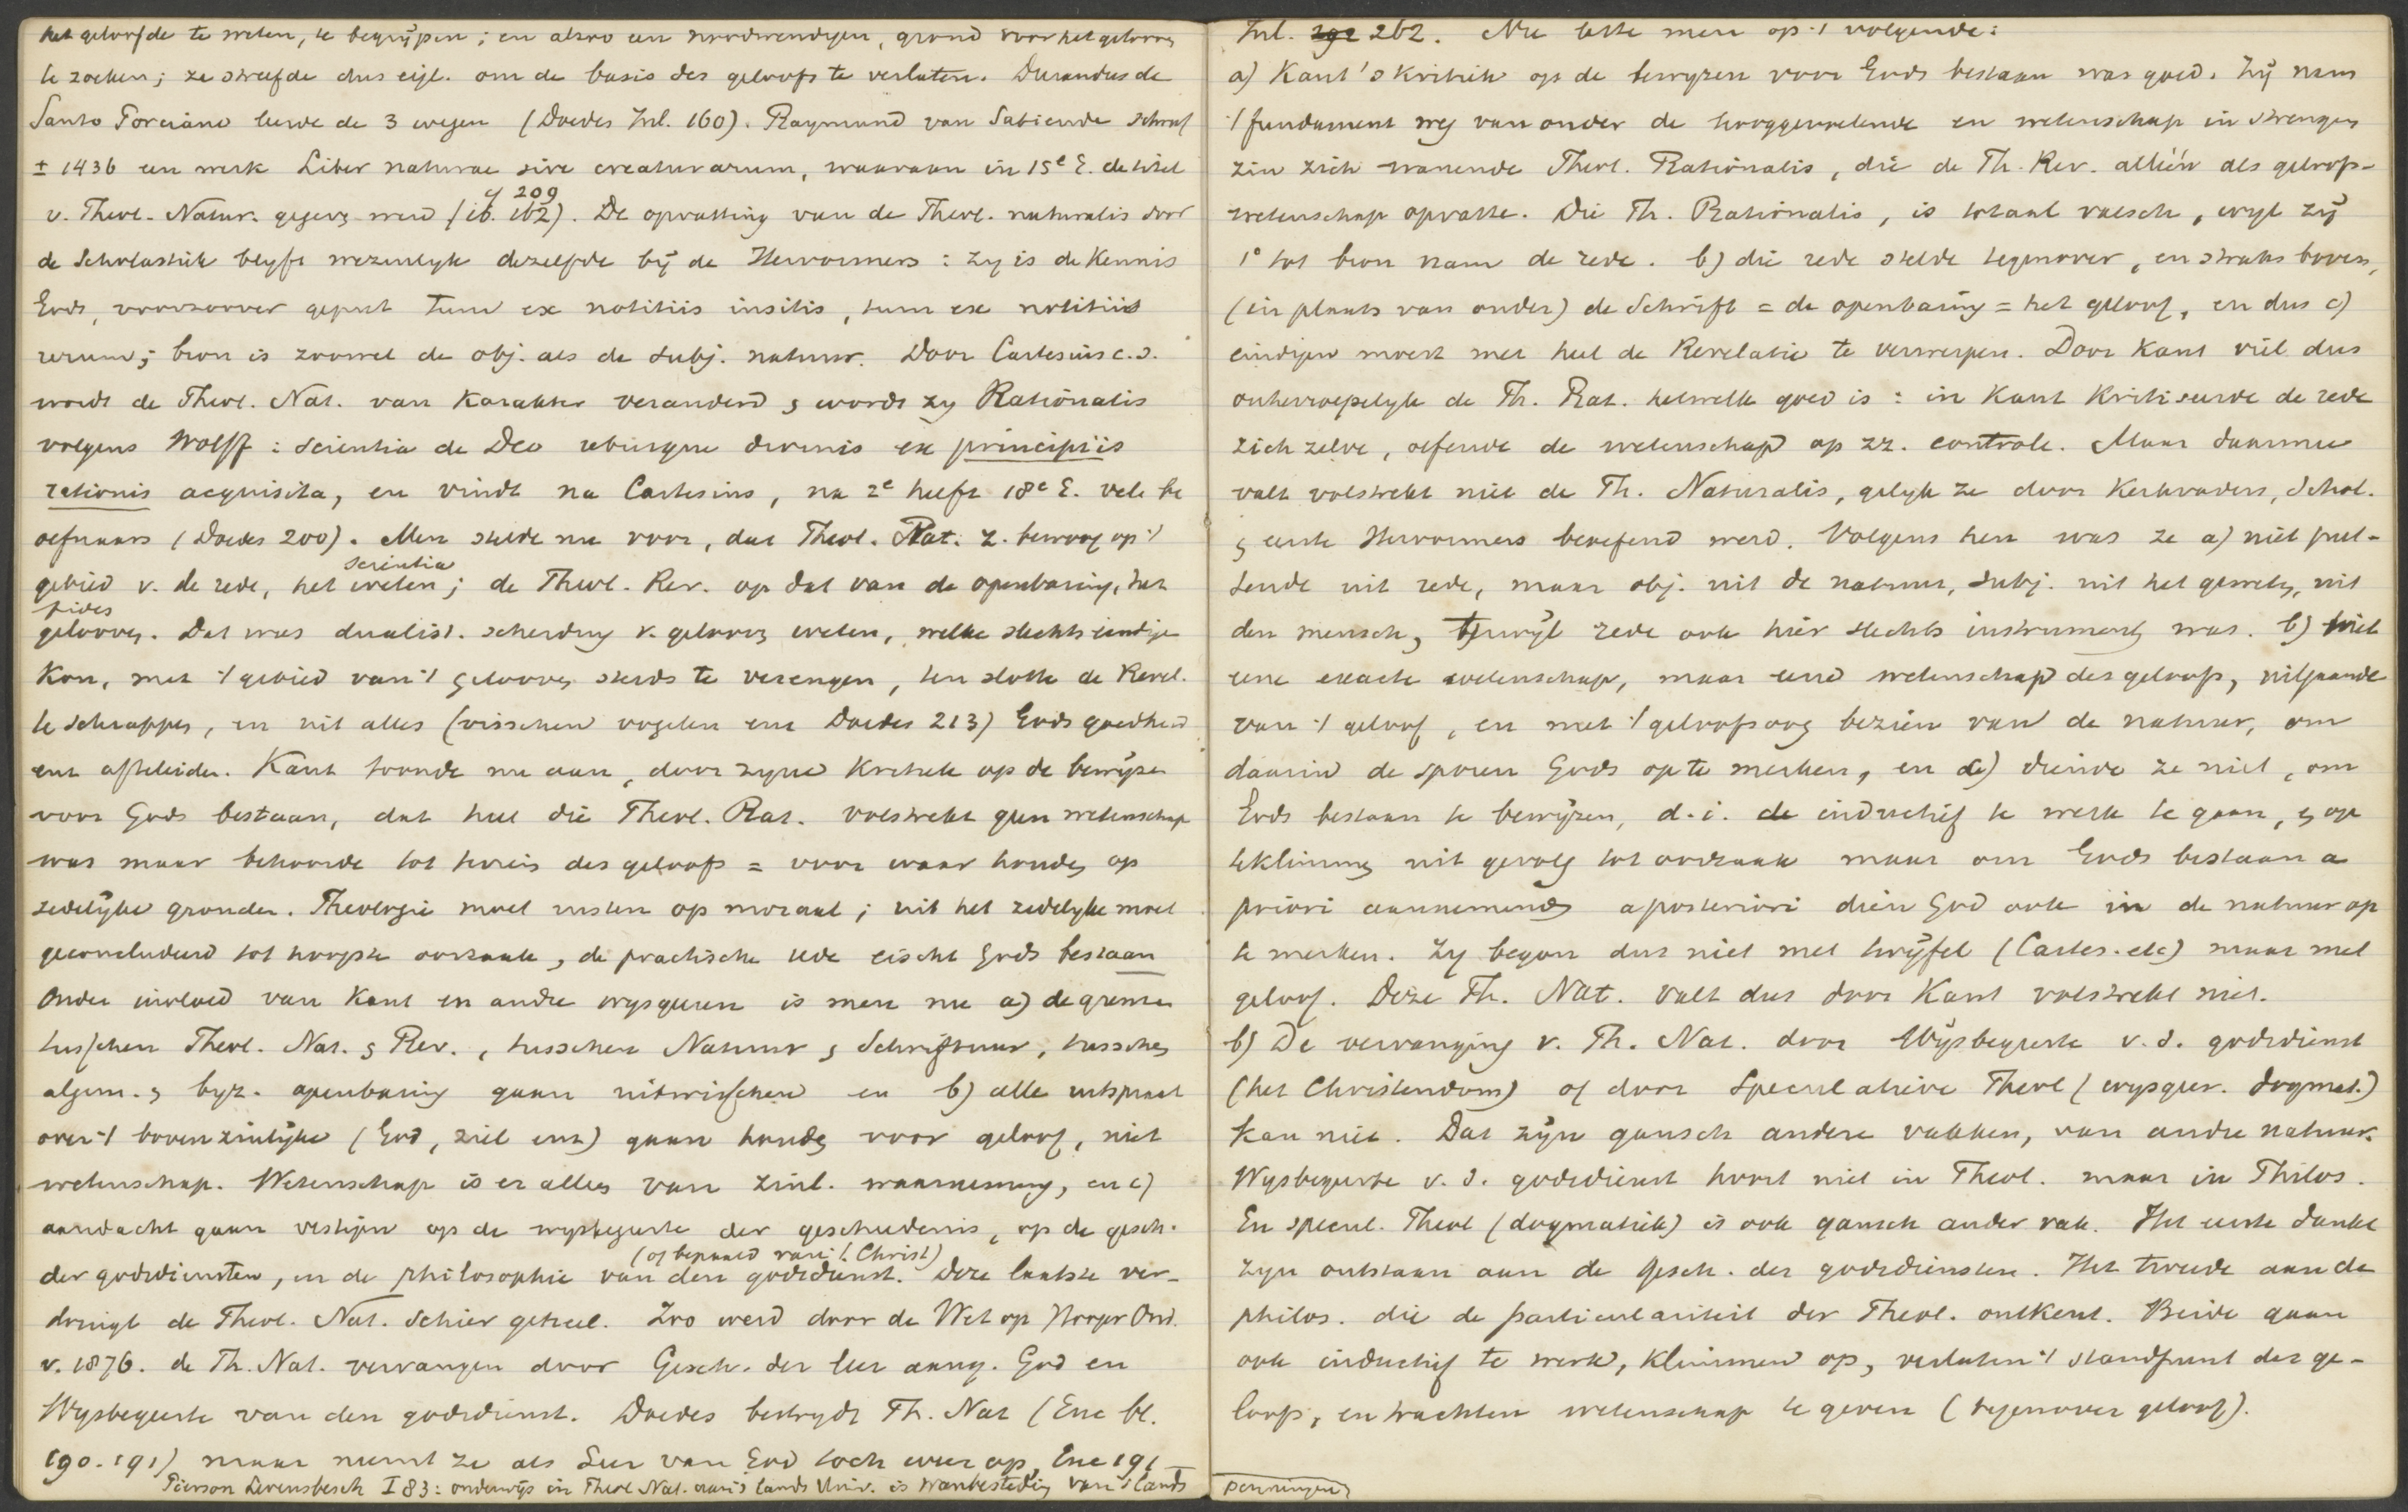 het geloofde te weten, te begrijpen; en alzoo een noodwendigen, grond voor het gelooven
te zoeken; ze streefde dus eigl. om de basis des geloofs te verlaten. Durandus de
Santo Porciano leerde de 3 wegen (Doedes Inl. 160). Raymund van Sabiende schreef
± 1436 een werk Liber naturae sive creaturarum, waaraan in 15e E. de titel
v. Theol. Natur. gegeven werd (ib. 162 cf 209). De opvatting van de Theol. naturalis door
de Scholastiek blyft wezenlyk dezelfde bij de Hervormers: zy is de Kennis
Gods, voorzoover geput tum ex notitiis insitis, tum ex notitiis
rerum; bron is zoowel de obj. als de subj. natuur. Door Cartesius c.s.
wordt de Theol. Nat. van Karakter veranderd, & wordt zy Rationalis
volgens Wolff: scientia de Deo rebusque divinis ex principiis
rationis acquisita, en vindt na Cartesius, na 2e helft 18e E. vele be
oefenaars (Doedes 200). Men stelde nu voor, dat Theol. Rat. z. bewoog op 't
gebied v. de rede, het weten scientia; de Theol. Rev. op dat van de openbaring, het
gelooven fides. Dat was dualist. scheiding v. gelooven weten, welke slechts eindigen
kon, met 't gebied van 't gelooven steeds te verengen, ten slotte de Revel.
te schrappen, en uit alles (visschen vogelen enz Doedes 213) Gods goedheid
enz afteleiden. Kant toonde nu aan, door zyne Kritiek op de bewijzen
voor Gods bestaan, dat heel die Theol. Rat. volstrekt geen wetenschap
was maar behoorde tot terrein des geloofs = voor waar houden op
zedelijke gronden. Theologie moet rusten op moraal; uit het zedelyke moet
geconcludeerd tot hoogste oorzaak, de practische rede eischt Gods bestaan
Onder invloed van Kant en andre wysgeeren is men nu a) de grenzen
tusschen Theol. Nat. & Rev., tusschen Natuur & Schriftuur, tusschen
algem. & byz. openbaring gaan uitwisschen en b) alle uitspraak
over 't bovenzinlijke (God, ziel enz) gaan houden voor geloof, niet
wetenschap. Wetenschap is er alleen van zinl. waarneming, en c)
aandacht gaan vestigen op de wysbegeerte der geschiedenis, op de gesch.
der godsdiensten, en de philosophie van den godsdienst (of bepaald van 't Christ). Deze laatste ver-
dringt de Theol. Nat. schier geheel. Zoo werd door de Wet op Hooger Ond.
v. 1876. de Th. Nat. vervangen door Gesch. der leer aang. God en
Wysbegeerte van den godsdienst. Doedes bestrydt Th. Nat (Enc bl.
190. 191) maar neemt ze als Leer van God toch weer op, Enc 191
Pierson Levensbesch I 83: onderwijs in Theol Nat. aan 's lands Univ. is wanbesteding van 's lands
penningen
Inl. 262. Nu lette men op 't volgende:
a) Kant's Kritiek op de bewyzen voor Gods bestaan was goed. Zij nam
't fundament weg van onder de hooggevoelende en wetenschap in strengen
zin zich wanende Theol. Rationalis, die de Th. Rev. alléén als geloofs-
wetenschap opvatte. Die Th. Rationalis, is totaal valsch, wyl zij
1° tot bron nam de rede. b) die rede stelde tegenover, en straks boven,
(in plaats van onder) de Schrift = de openbaring = het geloof, en dus c)
eindigen moest met heel de Revelatie te verwerpen. Door Kant viel dus
onherroepelyk de Th. Rat. hetwelk goed is: in Kant Kritiseerde de rede
zich zelve, oefende de wetenschap op zz. controle. Maar daarmee
valt volstrekt niet de Th. Naturalis, gelyk ze door Kerkvaders, Schol.
& eerste Hervormers beoefend werd. Volgens hen was ze a) niet put-
tende uit rede, maar obj. uit de natuur, subj. uit het geweten, uit
den mensch, terwijl rede ook hier slechts instrument was. b) niet
eene exacte wetenschap, maar eene wetenschap des geloofs, uitgaande
van 't geloof, en met 't geloofsoog bezien van de natuur, om
daarin de sporen Gods op te merken, en c) diende ze niet, om
Gods bestaan te bewijzen, d.i. inductief te werk te gaan, & op
teklimmen uit gevolg tot oorzaak maar om Gods bestaan a
priori aannemende a posteriori dien God ook in de natuur op
te merken. Zy begon dus niet met twijfel (Cartes. etc) maar met
geloof. Deze Th. Nat. valt dus door Kant volstrekt niet.
b) De vervanging v. Th. Nat. door Wijsbegeerte v. d. godsdienst
(het Christendom) of door Speculatieve Theol (wysgeer. dogmat.)
kan niet. Dat zijn gansch andere vakken, van andre natuur.
Wysbegeerte v. d. godsdienst hoort niet in Theol. maar in Philos.
En specul. Theol (dogmatiek) is ook gansch ander vak. Het eerste dankt
zyn ontstaan aan de Gesch. der godsdiensten. Het tweede aan de
philos. die de particulariteit der Theol. ontkent. Beide gaan
ook inductief te werk, klimmen op, verlaten 't standpunt des ge-
loofs, en trachten wetenschap te geven (tegenover geloof).